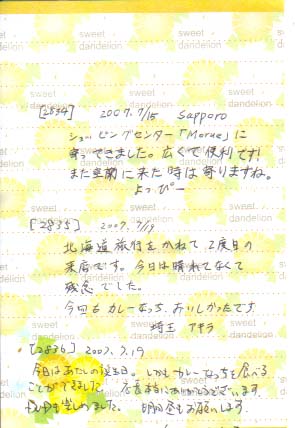 [2834] 2007.7/15 Sapporo
ショッピングセンター「Morue」に
寄ってきました。広くて便利です!
また室蘭に来た時は寄りますね。
よっぴー
[2835] 2007.7/19
北海道旅行をかねて、2度目の
来店です。今日は晴れてなくて
残念でした。
今回もカレーらっち、おいしかったです
埼玉 アキラ
[2836] 2007.7.19
今日はあたしの誕生日。しかもカレーらっちを食べる
ことができました。店長本当にありがとうございます。
明日会もお願いします。
sweet dandelion